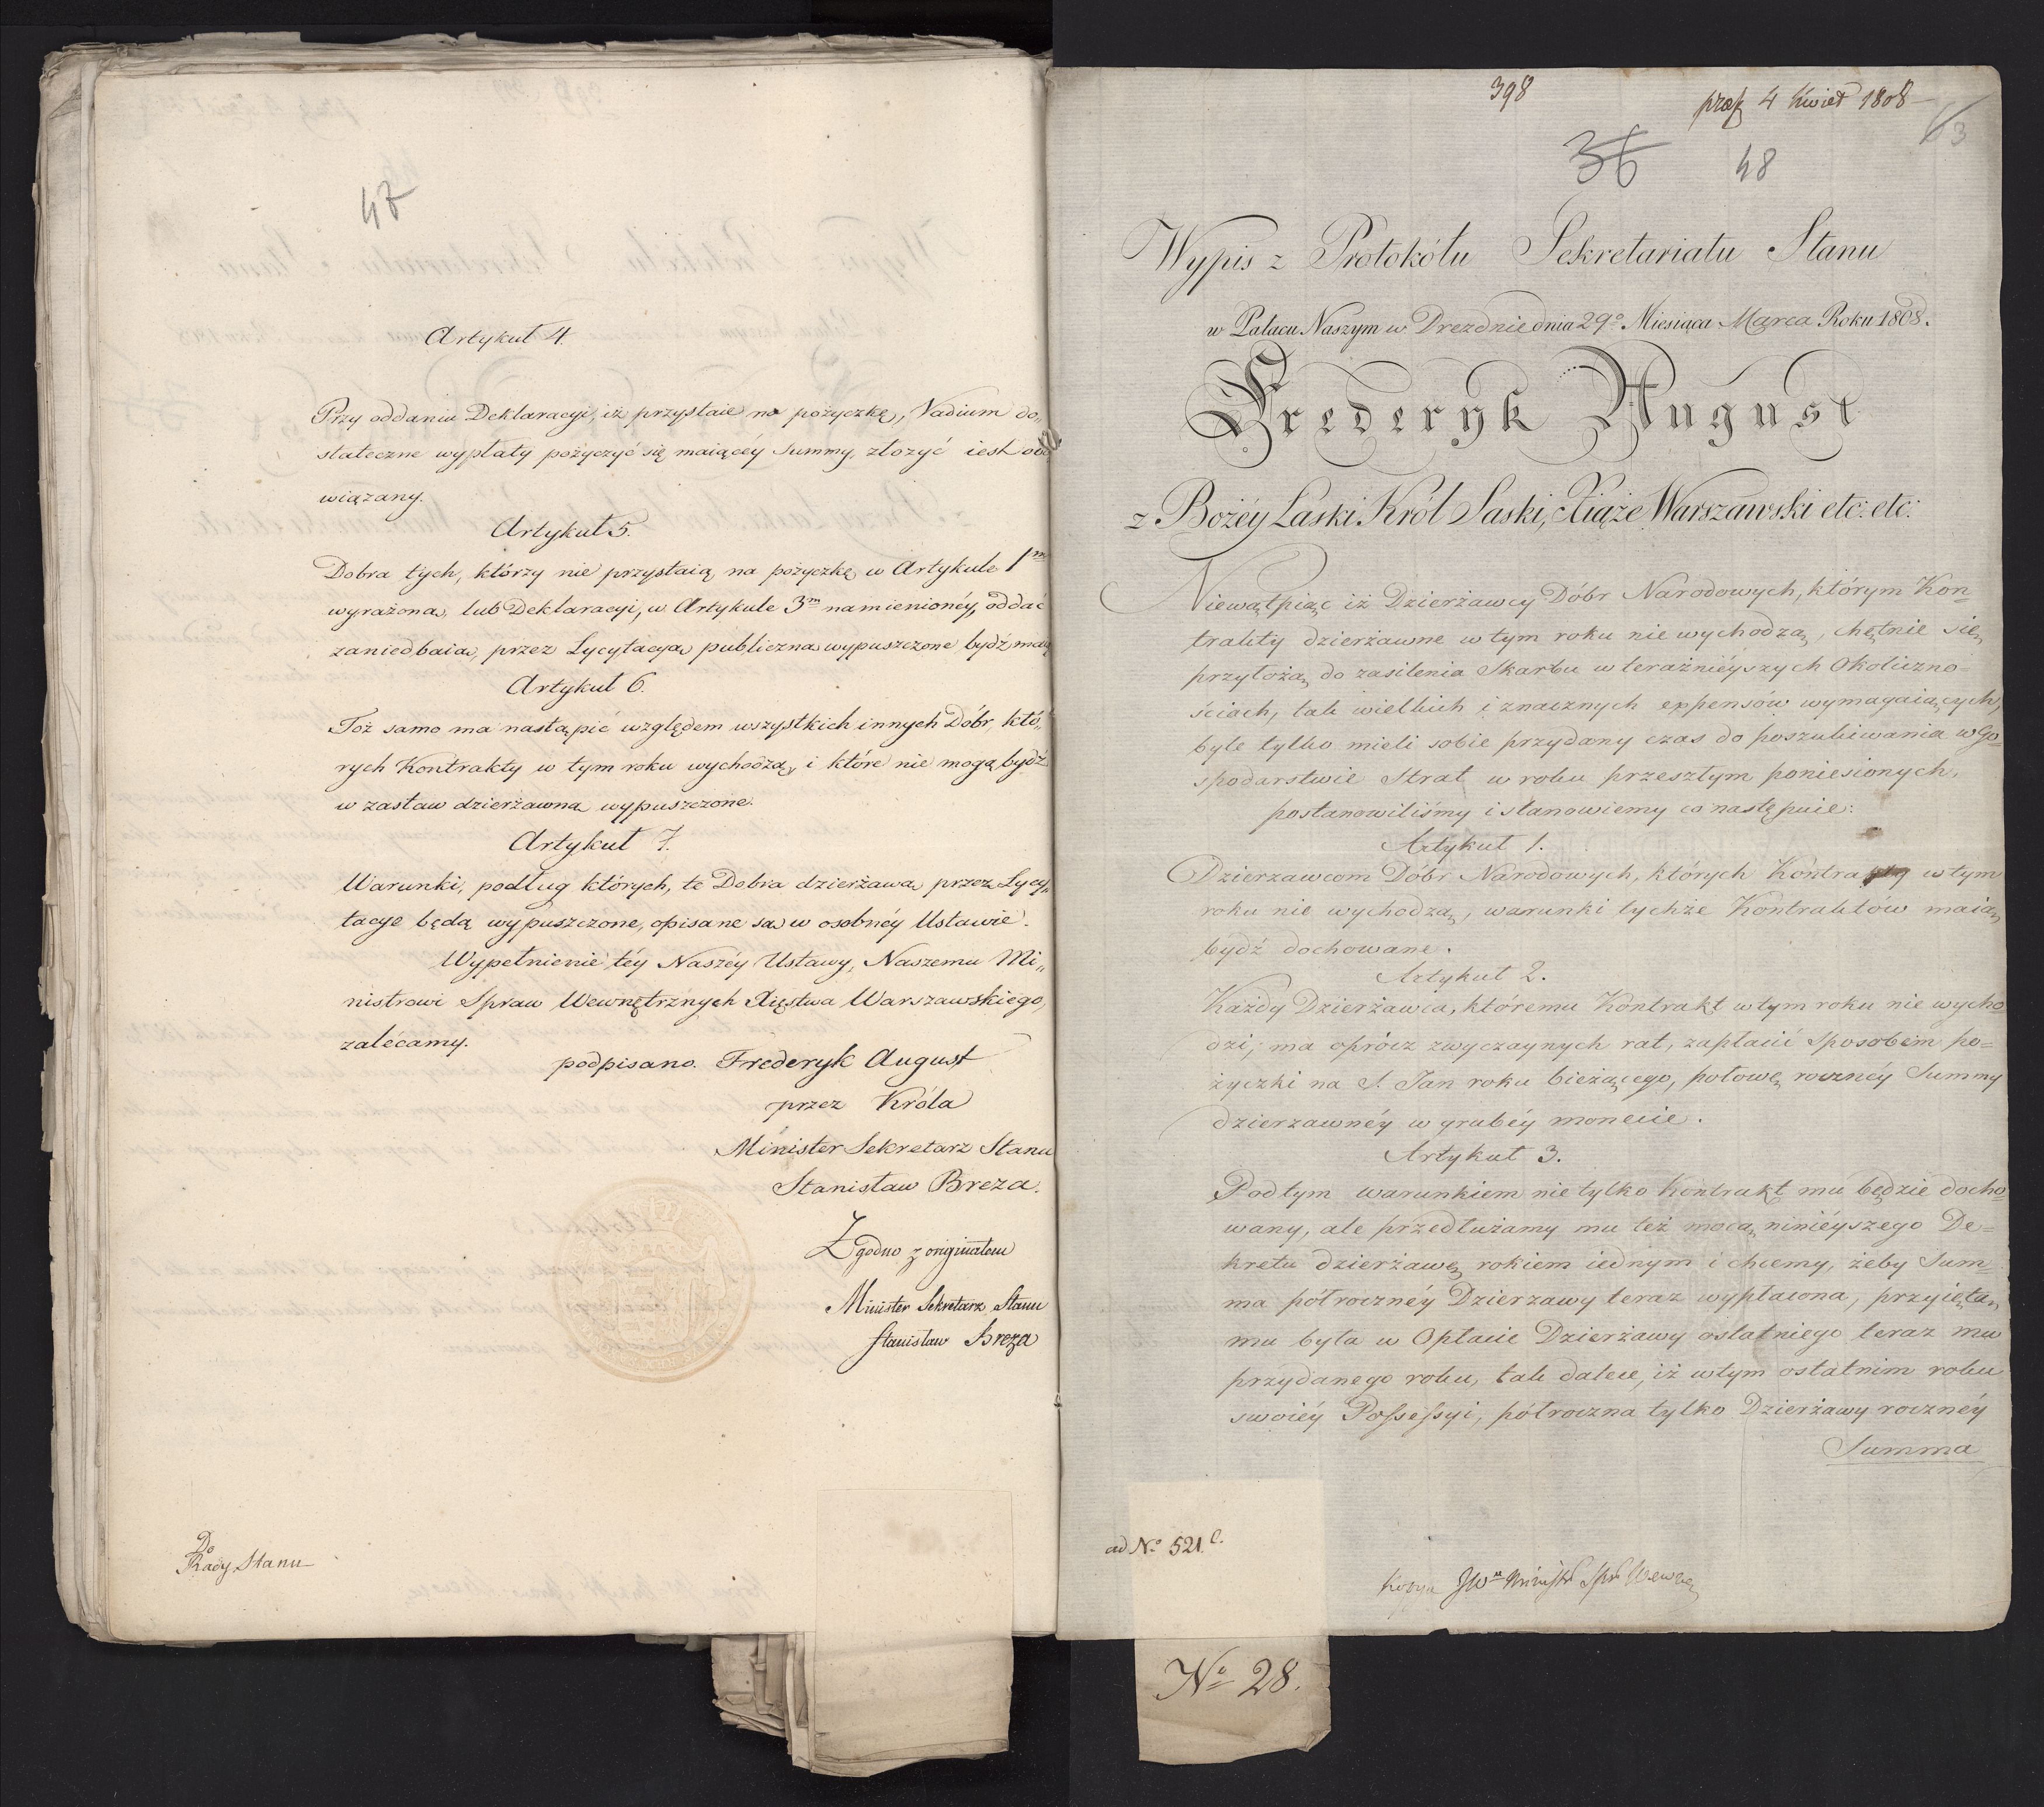 47
Artykuł 4.
Przy oddaniu Deklaracyi, iż przystaie na pożyczkę, Vadium do„
stateczne wypłaty pożyczyć się maiącéy Summy, złożyć iest obo„
wiązany.
Artykuł 5.
Dobra tych, którzy nie przystaią na pożyczkę w Artykule 1m
wyrażoną, lub Deklaracyi, w Artykule 3m namienionéy, oddać
zaniedbaią, przez Lycytacyą publiczną wypuszczone bydź maią
Artykuł 6.
Toż samo ma nastąpić względem wszystkich innych Dóbr, któ„
rych Kontrakty w tym roku wychodzą, i które nie mogą bydź
w zastaw dzierżawną wypuszczone.
Artykuł 7.
Warunki, podług których, te Dobra dzierżawą przez Lycy„
tacye będą wypuszczone, opisane są w osobnéy Ustawie.
Wypełnienie téy Naszéy Ustawy, Naszemu Mi„
nistrowi Spraw Wewnętrznych Xięstwa Warszawskiego,
zalécamy.
podpisano. Frederyk August
przez Króla
Minister Sekretarz Stanu
Stanisław Breza.
Zgodno z originałem
Minister Sekretarz Stanu
Stanisław Breza
Do
Rady Stanu
398
præs 4 Kwiet 1808
63
36 48
Wypis z Protokółu Sekretariatu Stanu
w Pałacu Naszym w Dreznie dnia 29o Miesiąca Marca Roku 1808.
Frederyk August
z Bożéy Łaski Król Saski, Xiąże Warszawski etc: etc:
Niewątpiąc iż Dzierżawcy Dóbr Narodowych, którym Kon=
trakty dzierżawne w tym roku nie wychodzą, chętnie się
przyłożą do zasilenia Skarbu w teraźnieyszych Okoliczno=
ściach, tak wielkich i znacznych expensów wymagaiących,
byle tylko mieli sobie przydany czas do poszukiwania w Go=
spodarstwie Strat w roku przeszłym poniesionych,
postanowiliśmy i stanowiemy co następuie:
Artykuł 1.
Dzierzawcom Dóbr Narodowych, których Kontrakty w tym
roku nie wychodzą, warunki tychże Kontraktów maią
bydź dochowane.
Artykuł 2.
Każdy Dzierżawca, któremu Kontrakt w tym roku nie wycho
dzi, ma oprócz zwyczaynych rat, zapłacić Sposobem po=
życzki na S. Jan roku bieżącego, połowę roczney Summy
dzierzawnéy w grubéy monecie.
Artykuł 3.
Pod tym warunkiem nie tylko kontrakt mu będzie docho=
wany, ale przedłużamy mu też mocą ninieyszego De=
kretu dzierżawę rokiem iednym i chcemy, żeby Sum=
ma półrocznéy Dzierzawy teraz wypłacona, przyiętą
mu była w Opłacie Dzierżawy ostatniego teraz mu
przydanego roku, tak dalece, iż w tym ostatnim roku
swoiéy Possessyi, półroczna tylko Dzierżawy roczney
Summa
ad No 521 C.
Kopya JWu Ministr Spr Wewnę
No 28.